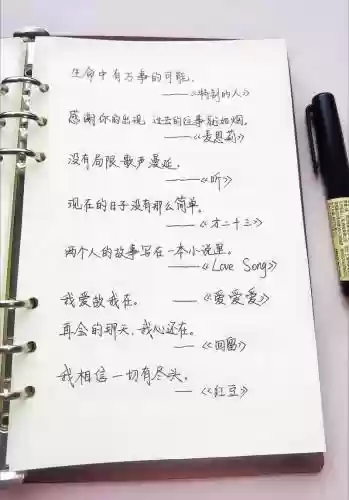 生命中有万事的可能.
——《特制的人》
感谢你的出现 过去的往事别如烟。
——《麦恩莉》
没有局限 歌声漫延。
——《听》
现在的日子没有那么简单。
——《才二十三》
两个人的故事写在一本小说里。
——《Love Song》
我爱故我在。
——《爱爱爱》
再会的那天,我心还在。
——《回留》
我相信一切有尽头。
——《红豆》